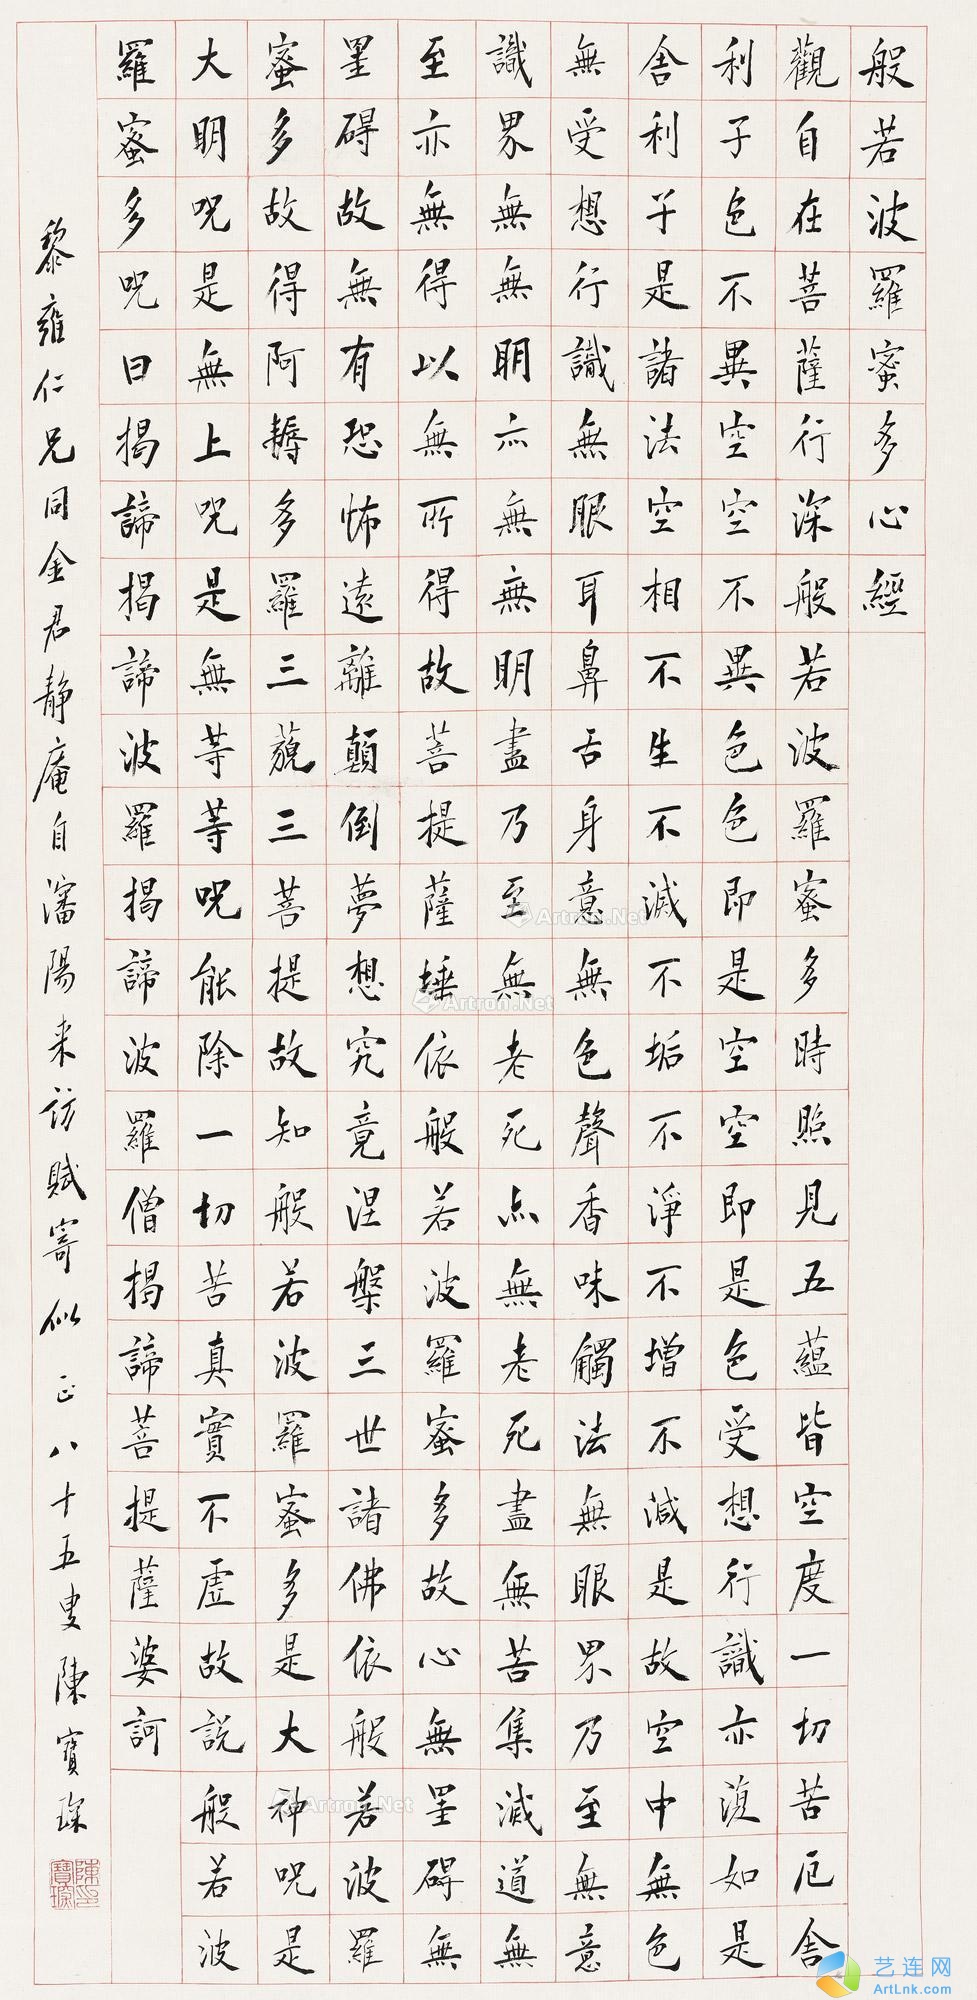 般若波羅蜜多心經
觀自在菩薩行深般若波羅蜜多時照見五蘊皆空度一切苦厄舍
利子色不異空空不異色色即是空空即是色受想行識亦復如是
舍利子是諸法空相不生不滅不垢不淨不增不減是故空中無色
無受想行識無眼耳鼻舌身意無色聲香味觸法無眼界乃至無意
識界無無明亦無無明盡乃至無老死亦無老死盡無苦集滅道無
至亦無得以無所得故菩提薩埵依般若波羅蜜多故心無罣碍無
罣碍故無有恐怖遠離顛倒夢想究竟涅槃三世諸佛依般若波羅
蜜多故得阿耨多羅三藐三菩提故知般若波羅蜜多是大神呪是
大明呪是無上呪是無等等呪能除一切苦真實不虛故說般若波
羅蜜多呪曰揭諦揭諦波羅揭諦波羅僧揭諦菩提薩婆訶
黎雍仁兄同金君靜庵自瀋陽来訪賦寄似 正 八十五叟陳寶琛
陳印寶琛
Artron.Net
Artron.Net
Artron.Net
艺连网
ArtLnk.com